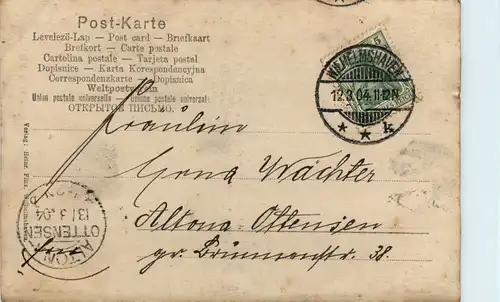 Post-Karte
Levelező-Lap — Post card — Briefkaart
Brefkort — Carte postale
Cartolina postale — Tarjeta postal
Dopisnice — Karta Korespondencyjna
Correspondenzkarte — Dopisnica
Weltpostverein
Union postale universelle — Unione postale universal:
ОТКРЫТОЕ ПИСЬМО.
5
WILHELMSHAVEN
12.3.04.11-12N
* * k
Fräulein
Erna Wächter
Altona-Ottensen
gr. Brunnenstr. 38.
ALTONA
OTTENSEN
13/3.04
Verlag: Heinr.